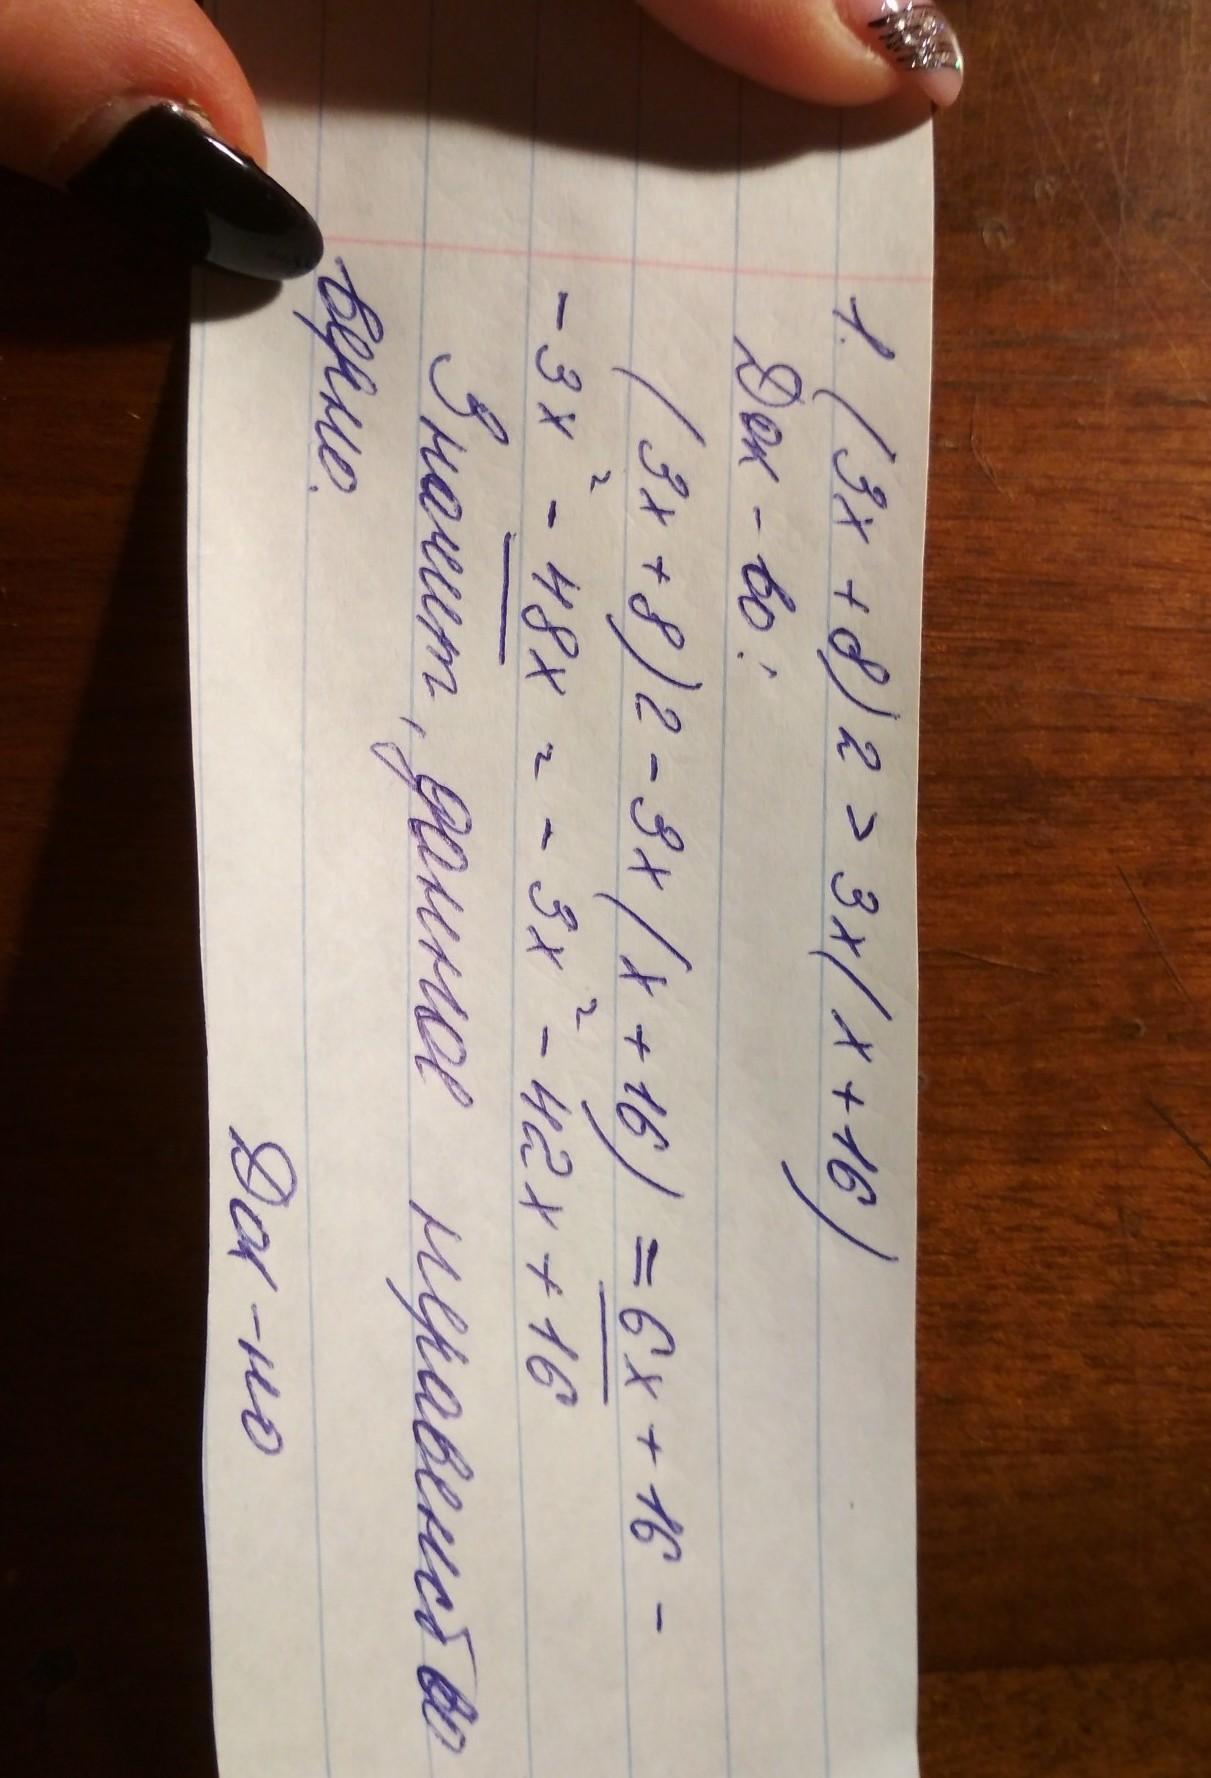 1. (3x + 8) 2 > 3x (x + 16)
Док - во:
(3x + 8) 2 - 3x (x + 16) = 6x + 16 -
- 3x² - 48x = - 3x² - 42x + 16
Значит, данное неравенство
верно.
Док - но